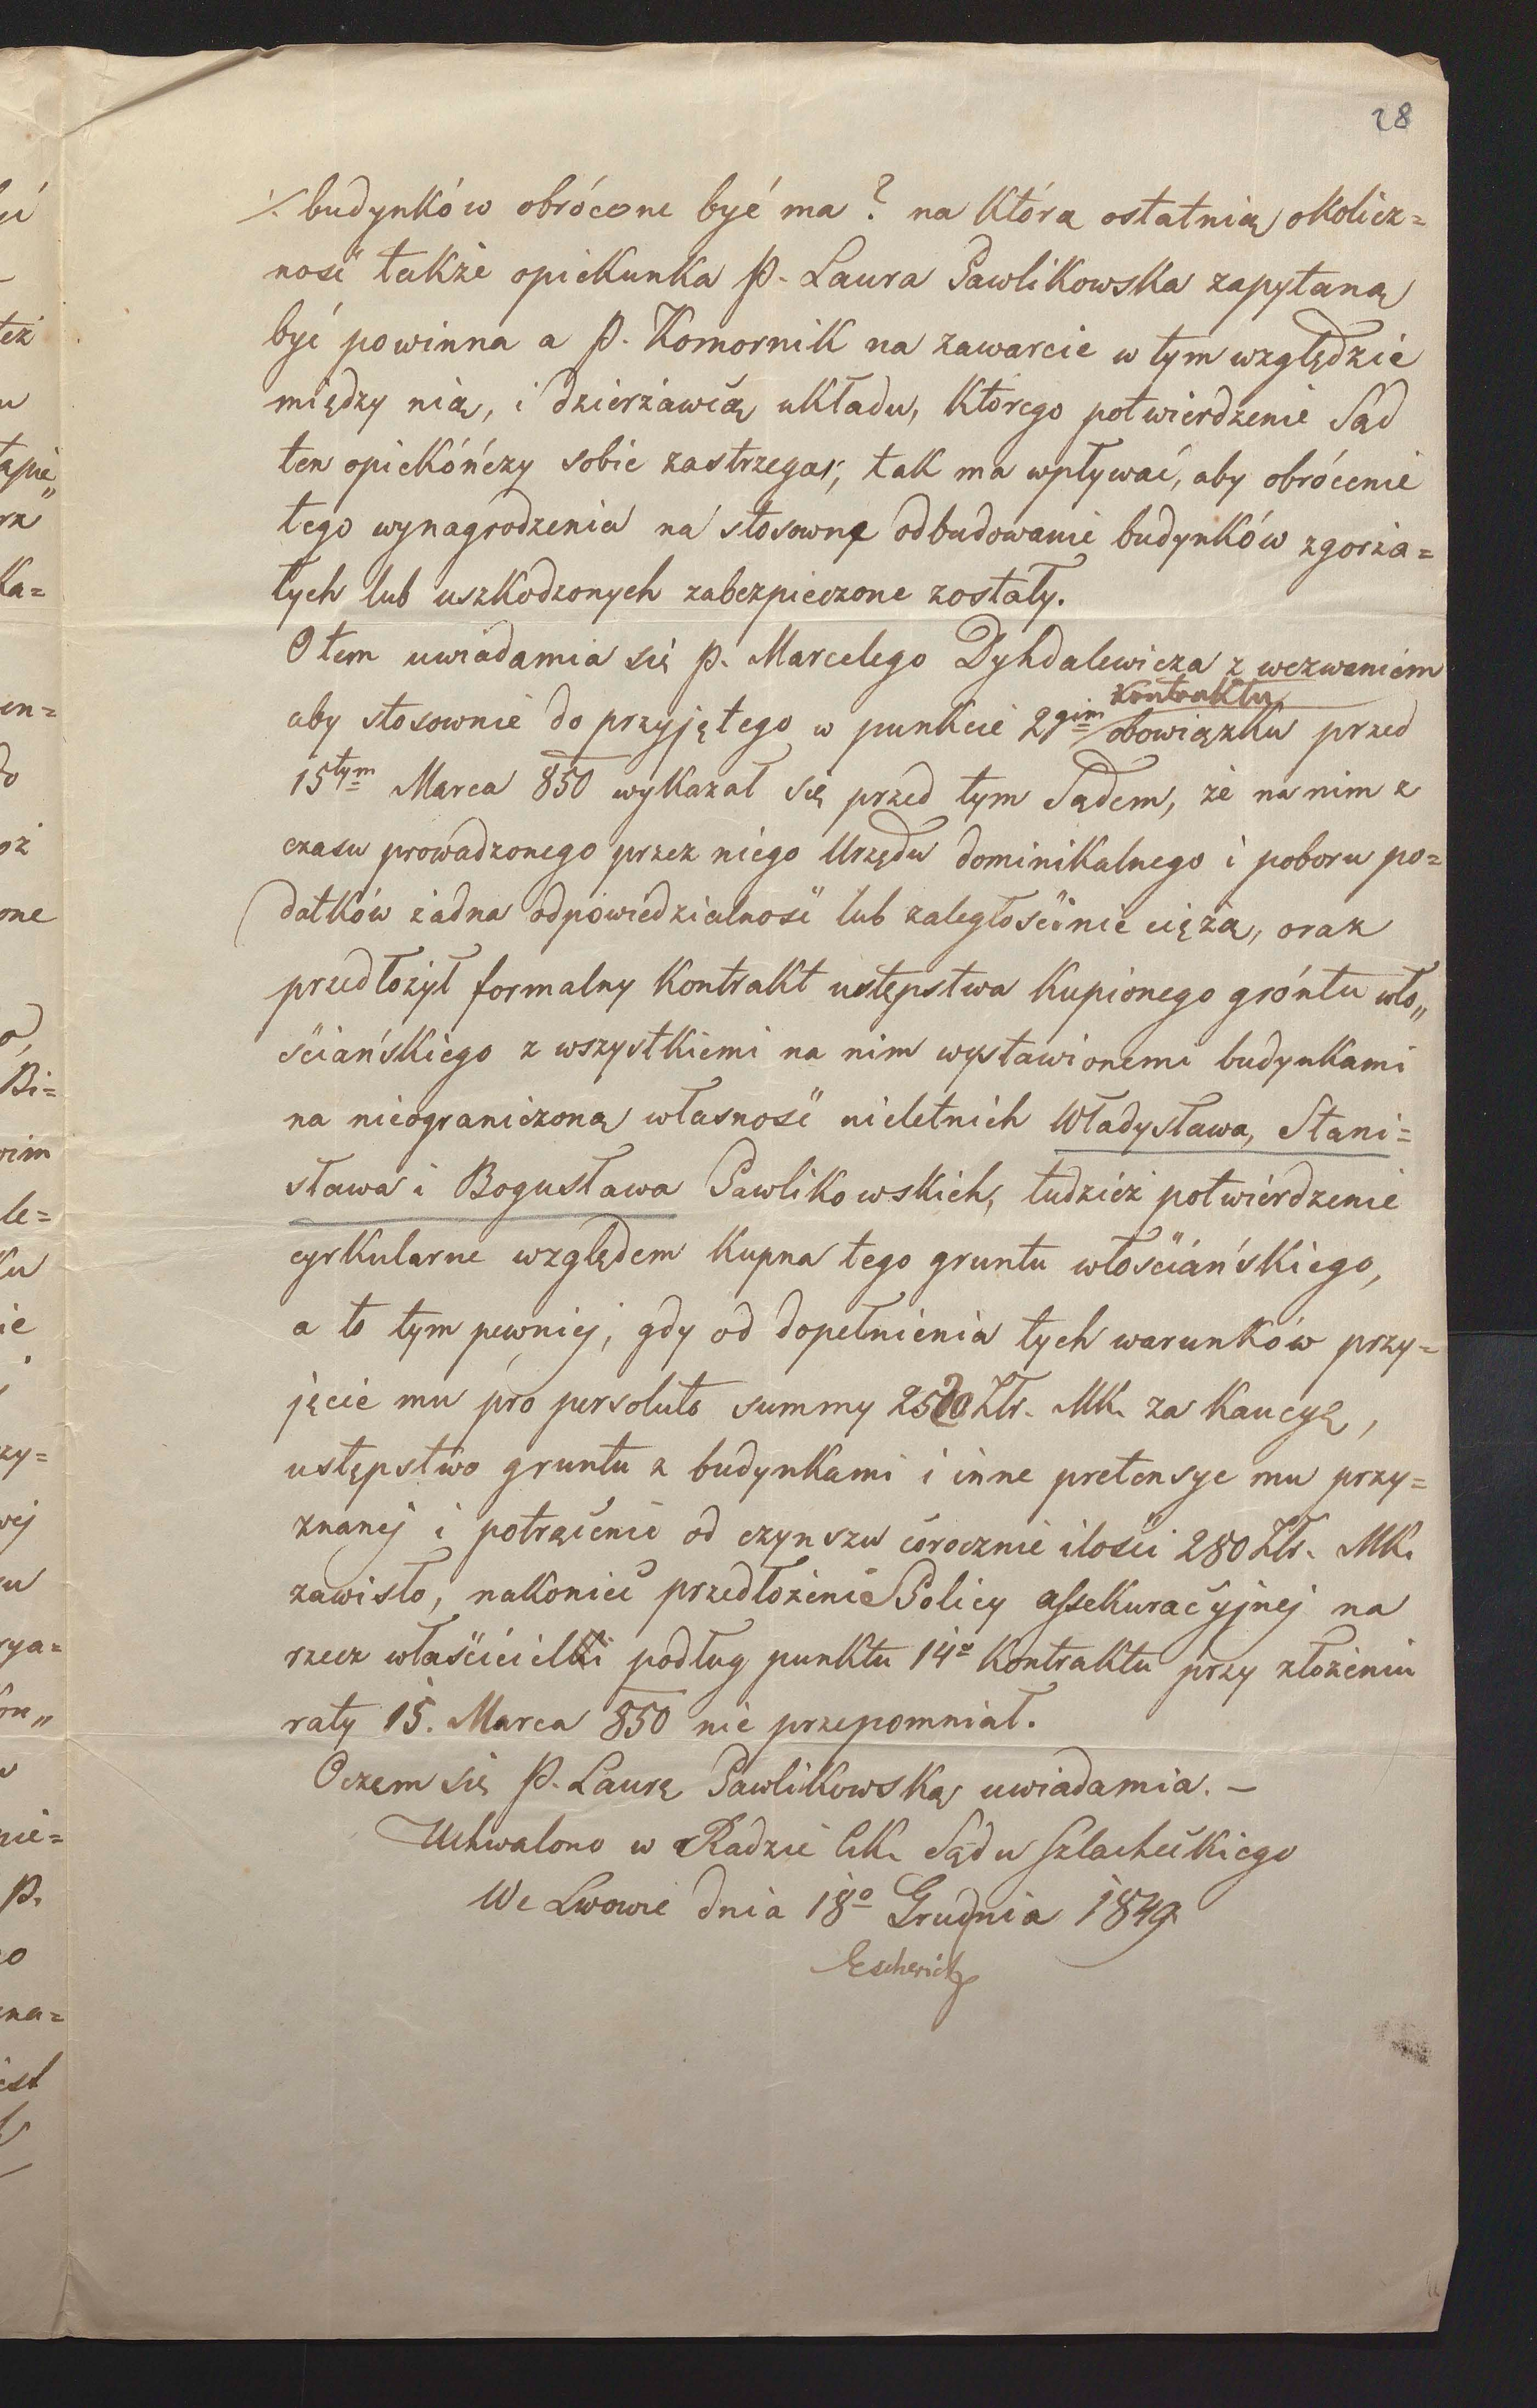 28
⁒ budynków obrócone być ma? na którą ostatnią okolicz=
ność także opiekunka P. Laura Pawlikowska zapytaną
być powinna a P. Komornik na zawarcie w tym względzie
między nią, i dzierżawcą układu, którego potwierdzenie Sąd
ten opiekóńczy sobie zastrzega, tak ma wpływać, aby obrócenie
tego wynagrodzenia na stosowne odbudowanie budynków zgorza=
łych lub uszkodzonych zabezpieczone zostały.
O tem uwiadamia się P. Marcelego Dyhdalewicza z wezwaniem
aby stosownie do przyjętego w punkcie 2gim kontraktu obowiązku przed
15tym Marca 850 wykazał się przed tym Sądem, że na nim z
czasu prowadzonego przez niego Urzędu dominikalnego i poboru po=
datków żadna odpowiedzialność lub zaległość nie ciężą, oraz
przedłożył formalny Kontrakt ustępstwa kupionego gróntu wło„
ściańskiego z wszystkiemi na nim wystawionemi budynkami
na nieograniczoną własność nieletnich Władysława, Stani=
sława i Bogusława Pawlikowskich, tudzież potwierdzenie
cyrkularne względem kupna tego gruntu włościańskiego,
a to tym pewniej, gdy od dopełnienia tych warunków przy=
jęcie mu pro persoluto summy 2520 Złr. MK. za kaucyę,
ustępstwo gruntu z budynkami i inne pretensye mu przy=
znanej i potrącenie od czynszu corocznie ilości 280 Złr. MK.
zawisło, nakoniec przedłożenie Policy assekuracyjnej na
rzecz właścicielki podług punktu 14o kontraktu przy złożeniu
raty 15. Marca 850 nie przepomniał.
Oczem się P. Laurę Pawlikowską uwiadamia. –
Uchwalono w Radzie C.K. Sądu Szlacheckiego
We Lwowie dnia 18o Grudnia 1849.
Escherich